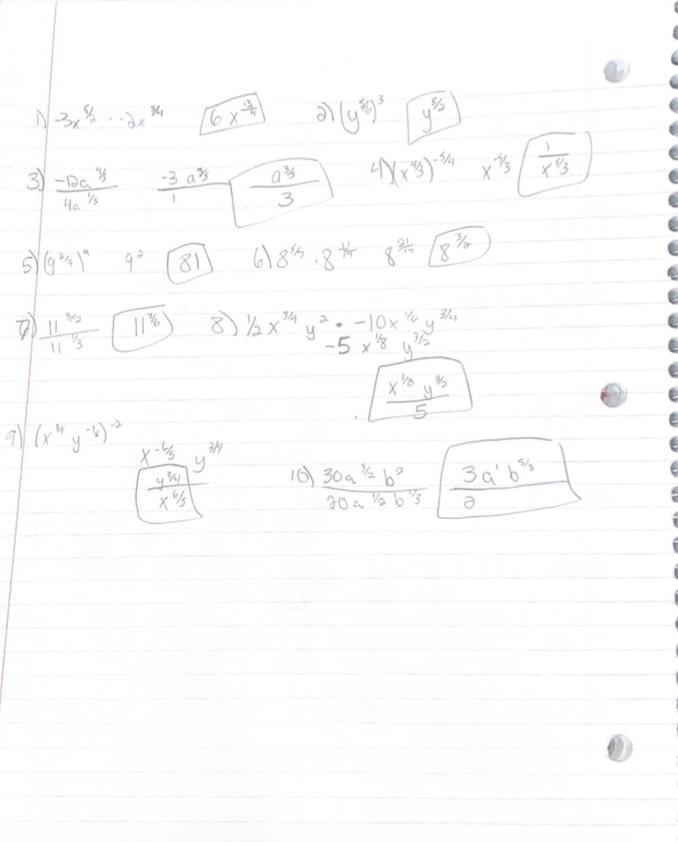 1) -3x^5/2 · -2x^3/4 6x^13/4 2) (y^5/6)^3 y^5/2
3) -12a^4/5 / 4a^1/5 -3a^3/5 / 1 a^3/5 / 3 4) (x^4/3)^-5/4 x^-5/3 1 / x^5/3
5) 9^2 81 6) 8^21/14 8^3/2
7) 11^3/2 / 11^1/3 11^7/6 8) 1/2 x^3/4 y^2 · -10x y^3/4
-5 x^1/8 y^3/2
x^1/8 y^3/2 / 5
9)
x^-6/5 y^3/4
y^3/4 / x^6/5 10) 30a^3/2 b^2 / 20a^1/2 b^1/3 3a^1 b^5/3 / 2